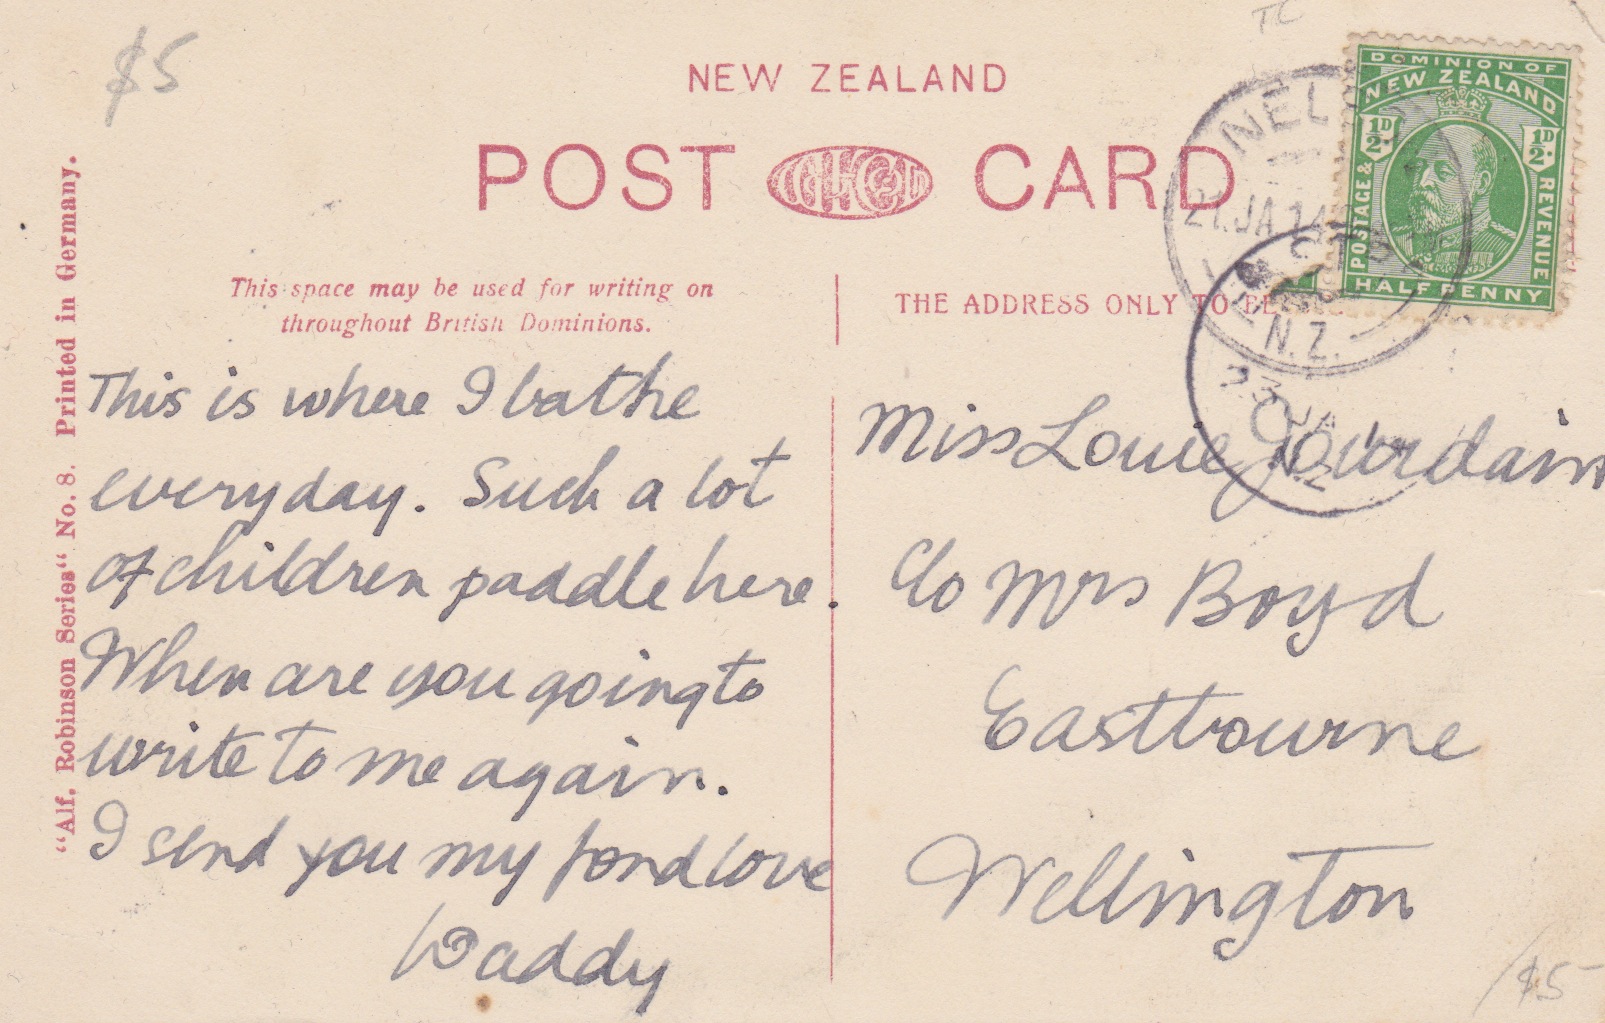 $5
TC
NEW ZEALAND
POST CARD
DOMINION OF
NEW ZEALAND
½D ½D
POSTAGE & REVENUE
HALFPENNY
NEL
21.JA 14
N.Z.
3 JA
N.Z
"Alf. Robinson Series" No. 8. Printed in Germany.
This space may be used for writing on
throughout British Dominions.
THE ADDRESS ONLY TO BE
This is where I bathe
everyday. Such a lot
of children paddle here.
When are you going to
write to me again.
I send you my fond love
Daddy
Miss Louie Jourdain
c/o Mrs Boyd
Eastbourne
Wellington
$5